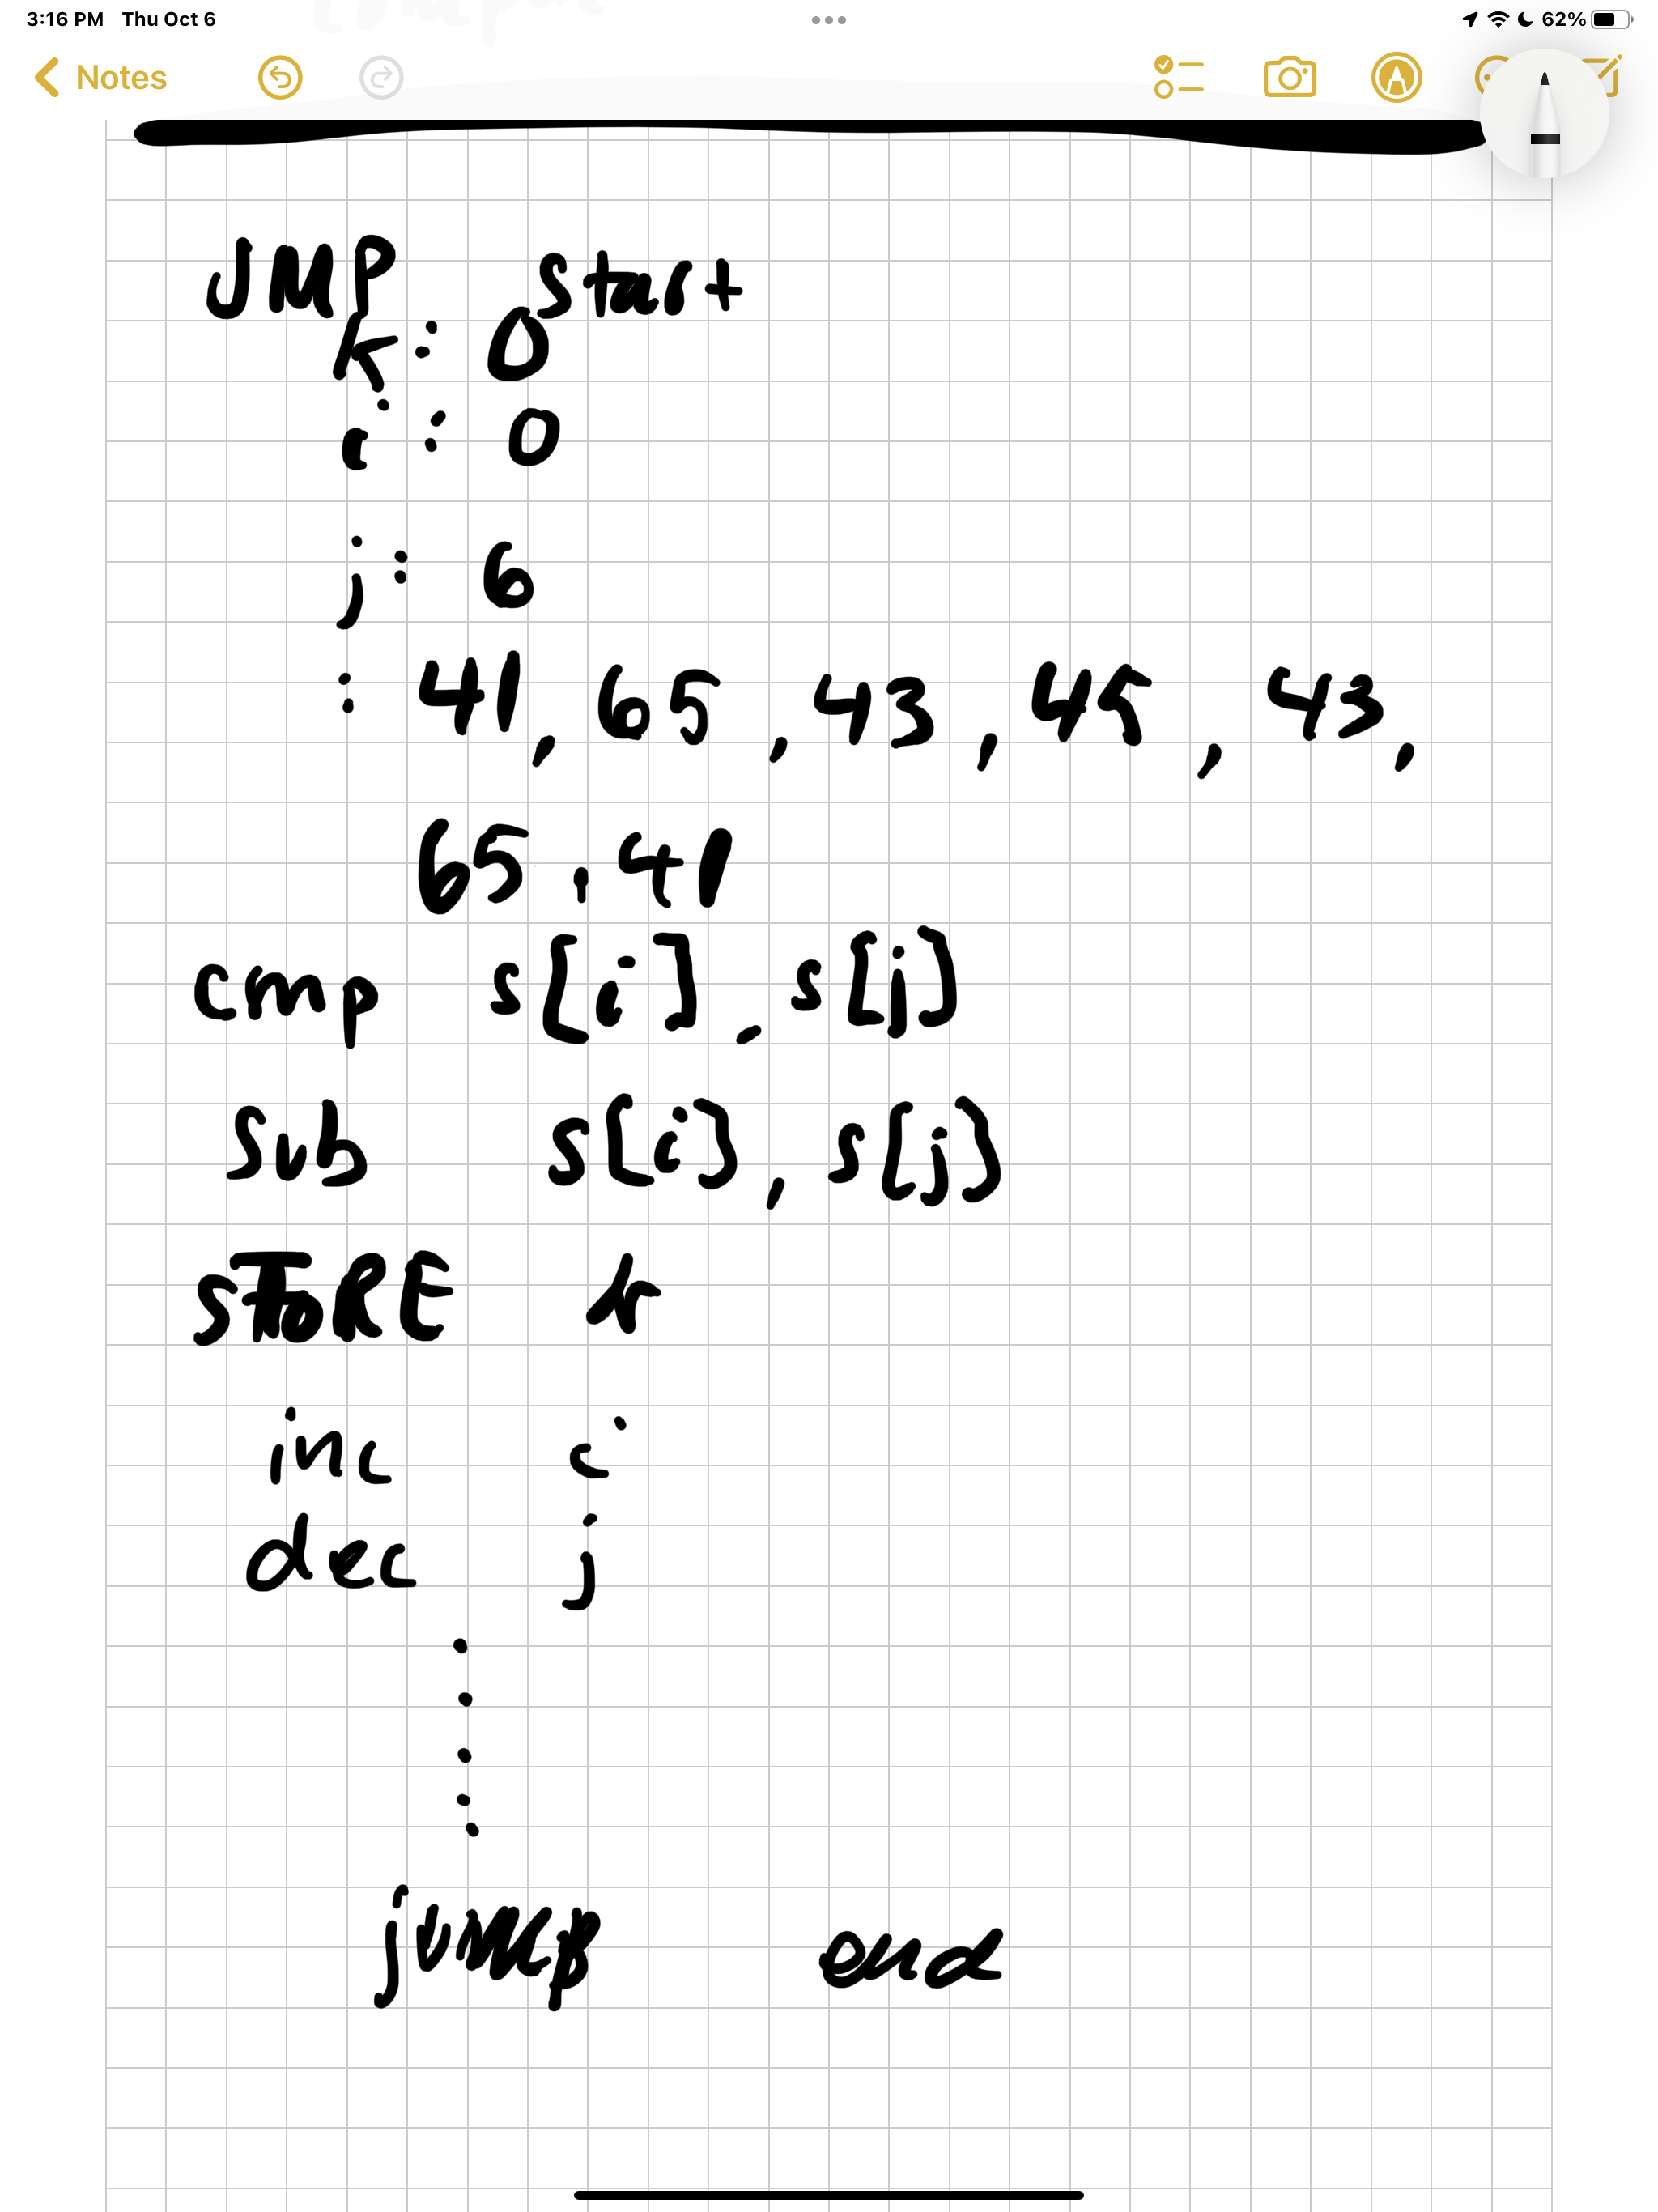 3:16 PM Thu Oct 6 62%
Notes
JMP start
k: 0
i: 0
j: 6
: 41, 65, 43, 45, 43,
65, 41
cmp s[i], s[j]
sub s[i], s[j]
STORE k
inc i
dec j
jump end